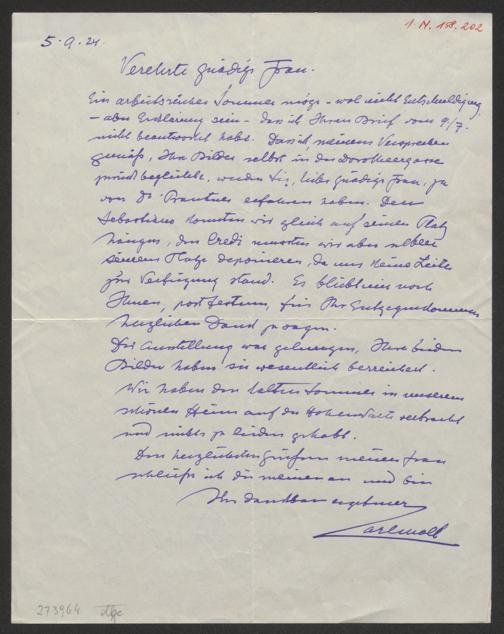 I.N. 158.202
5.9.24.
Verehrte gnädige Frau.
Ein arbeitsreicher Sommer möge – wol nicht Entschuldigung
– aber Erklärung sein – dass ich Ihren Brief vom 9/7.
nicht beantwortet habe. Dass ich, meinem Versprechen
gemäß, Ihre Bilder selbst in die Dorotheergasse
zurückbegleitete, werden Sie, liebe gnädige Frau, ja
von Dr erfahren haben. Den
Sebastiano konnten wir gleich auf seinen Platz
hängen, den Credi mussten wir aber neben
seinem Platze deponieren, da uns keine Leiter
zur Verfügung stand. Es bliebe mir noch
Ihnen, post festum, für Ihr Entgegenkommen
herzlichen Dank zu sagen.
Die Ausstellung war gelungen, Ihre beiden
Bilder haben sie wesentlich bereichert.
Wir haben den kalten Sommer in unserem
schönen Heim auf der Hohen Warte verbracht
und nichts zu leiden gehabt.
Den herzlichsten Grüßen meiner Frau
schließe ich die meinen an und bin
Ihr dankbar ergebener
Carl Moll
273964